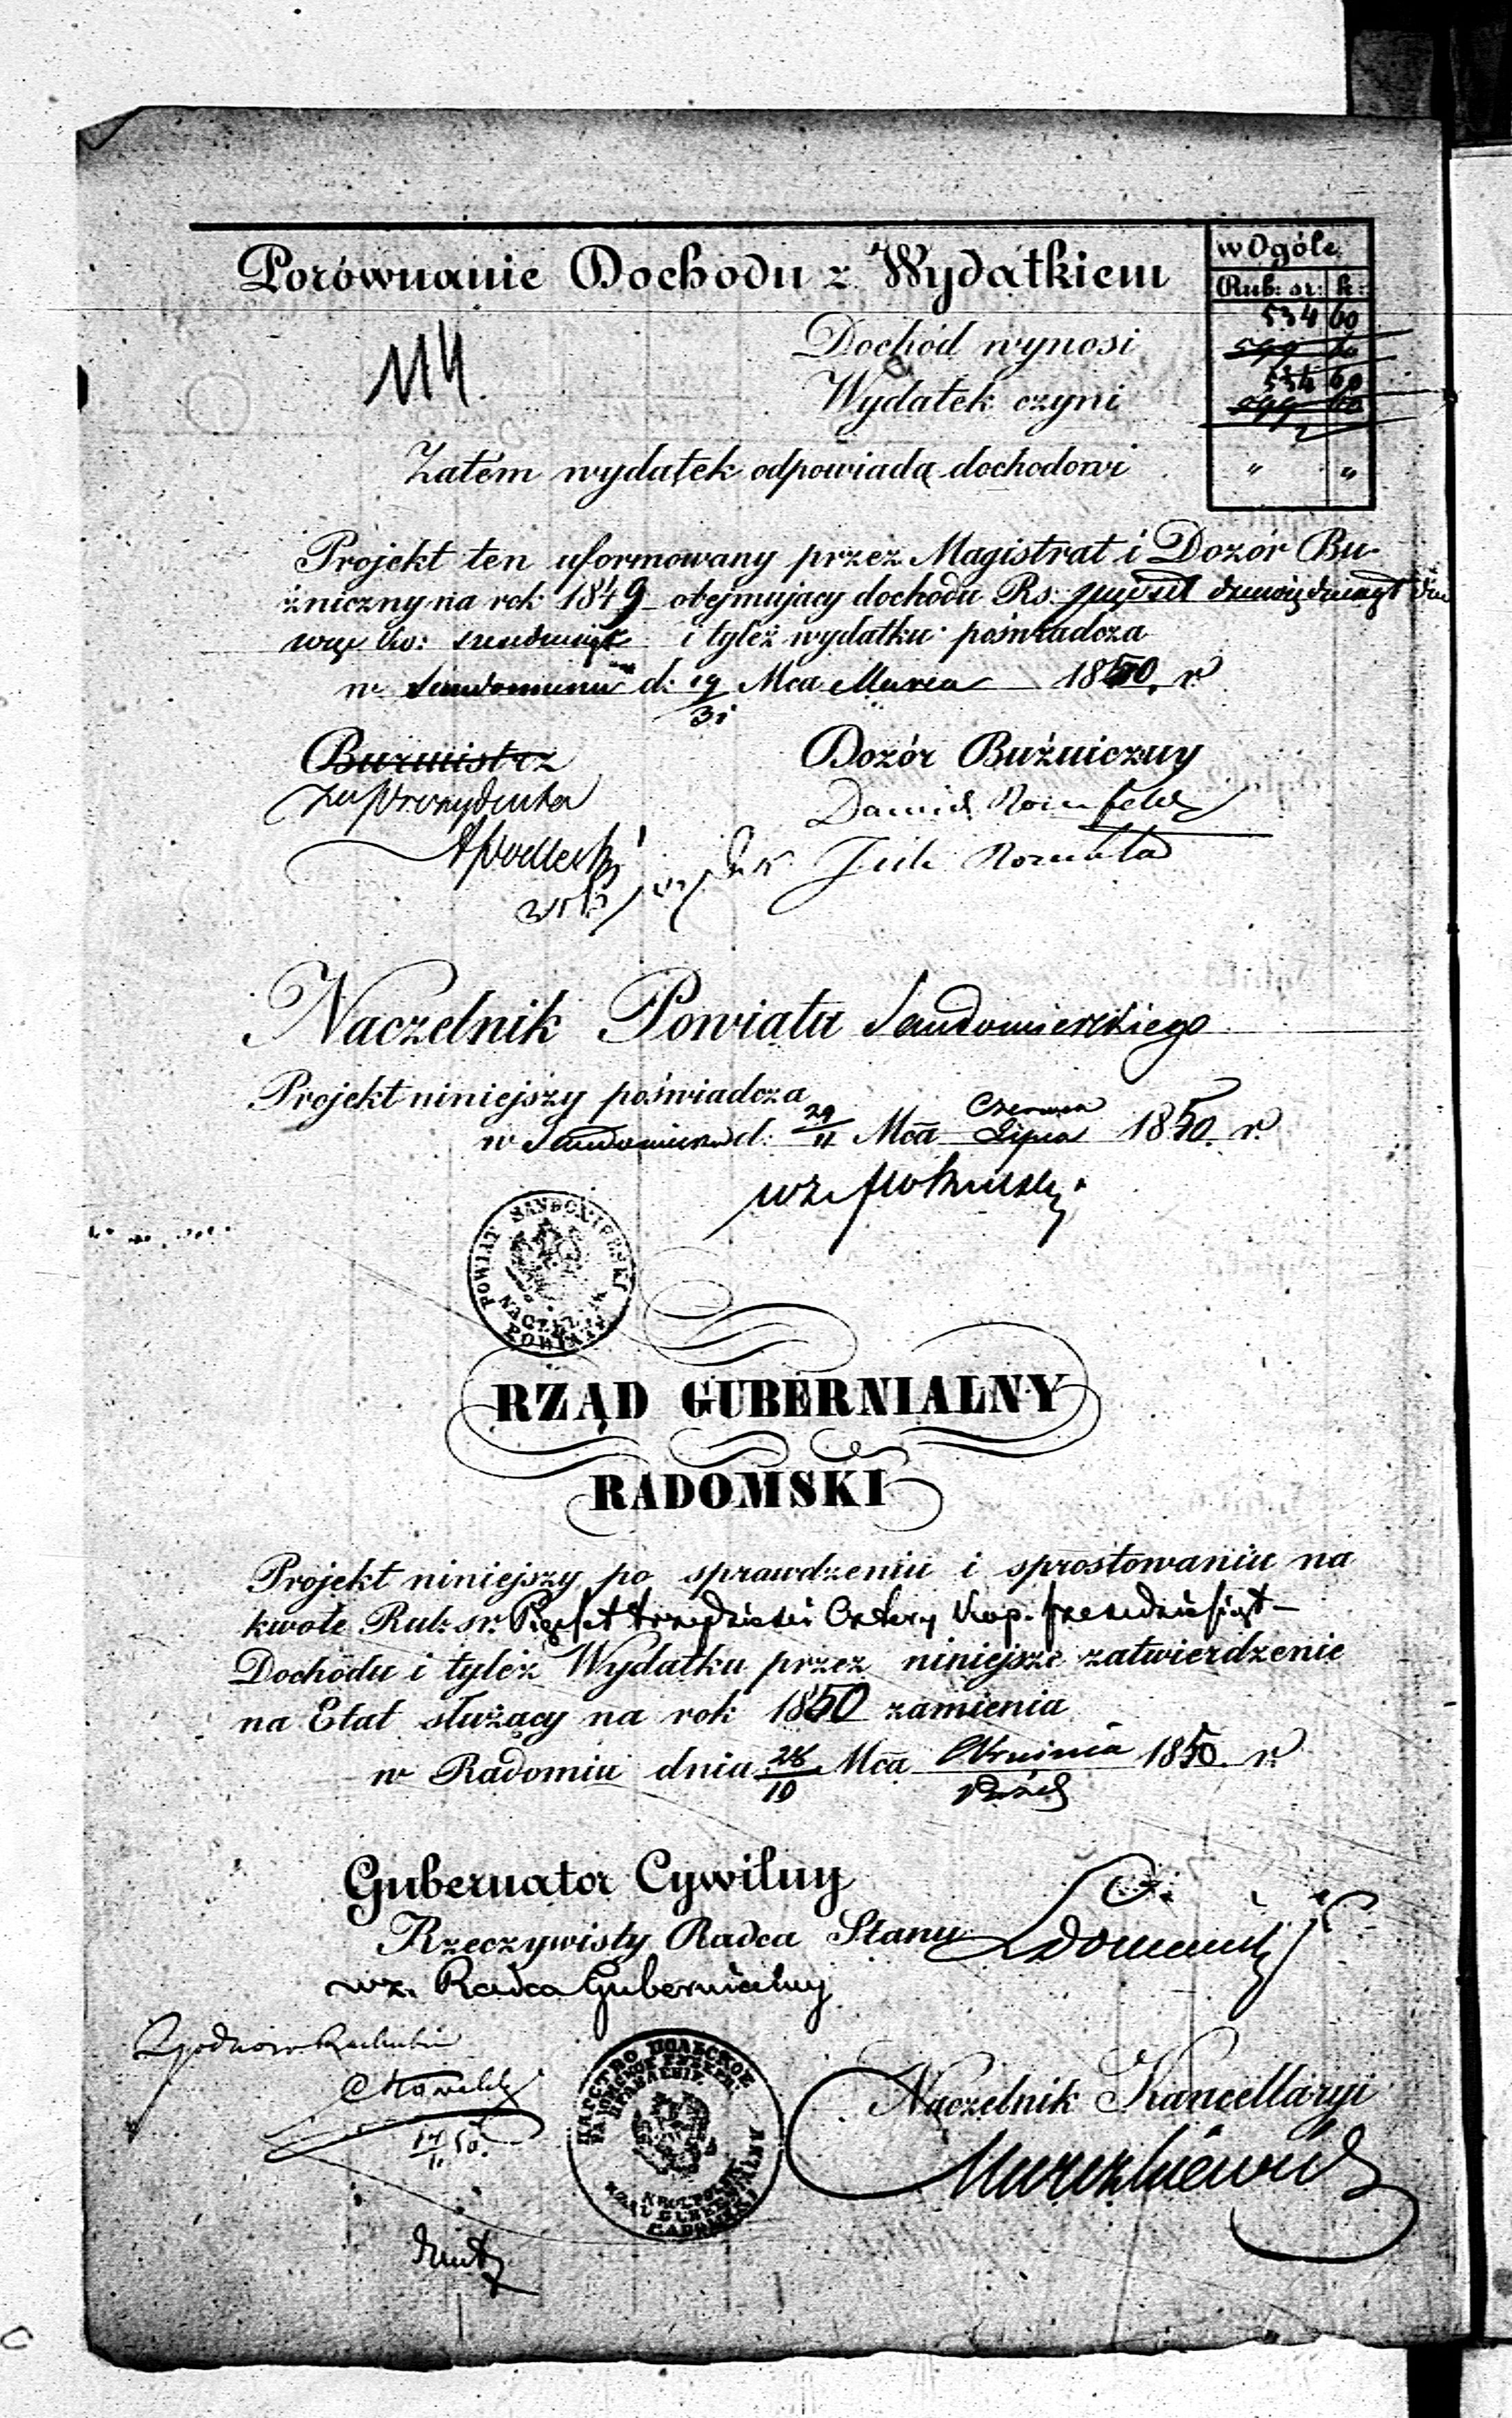 Porównanie Dochodu z Wydatkiem
w Ogóle.
Rub: sr: k:
114.
534 60
Dochód wynosi 599 60
534 60
Wydatek czyni 599 60
Zatém wydatek odpowiada dochodowi " "
Projekt ten uformowany przez Magistrat i Dozór Bu-
żniczny na rok 1849 obejmujący dochodu Rs: pięćset dziewięćdziesiąt dzie
więć ko: sześćdziesiąt i tyleż wydatku poświadcza
w Sandomierzu d: 19/31 Mca Marca 1850. r.
Burmistrz Dozór Bużniczny
Za Prezydenta Dawid
Naczelnik Powiatu Sandomierskiego
Projekt niniejszy poświadcza
w Sandomierzu d: 29/11 Mca Czerwca/Lipca 1850. r.
wz.
POWIAT SANDOMIERSKI
NACZEL. POWIATU
RZĄD GUBERNIALNY
RADOMSKI
Projekt niniejszy po sprawdzeniu i sprostowaniu na
kwotę Rub: sr. Pięćset trzydzieści Cztery Kop. sześćdziesiąt –
Dochodu i tyleż Wydatku przez niniejsze zatwierdzenie
na Etat służący na rok 1850 zamienia
w Radomiu dnia 28/10 Mca Września/Paźd 1850. r.
Gubernator Cywilny
Rzeczywisty Radca Stanu
wz. Radca Gubernialny
Naczelnik Kancellaryi
ЦАРСТВО ПОЛЬСКОЕ